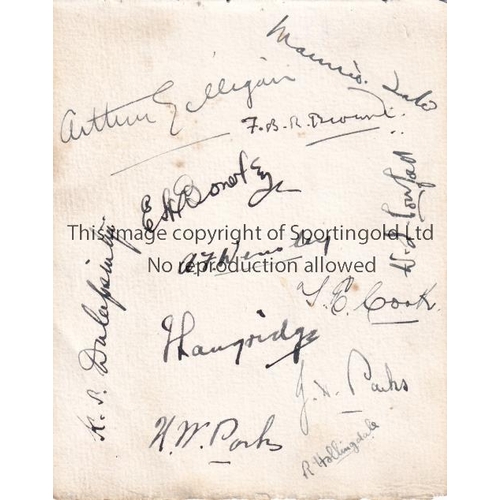 Maurice Tate
Arthur Gilligan
F.B.R. Browne.
E H Bowley
This image is copyright of Sportingold Ltd
No reproduction is allowed
A F Wensley
W. L. Cornford
T. E. Cook
K. S. Duleepsinhji.
J Langridge
J. H. Parks
H. W. Parks
R Hollingdale